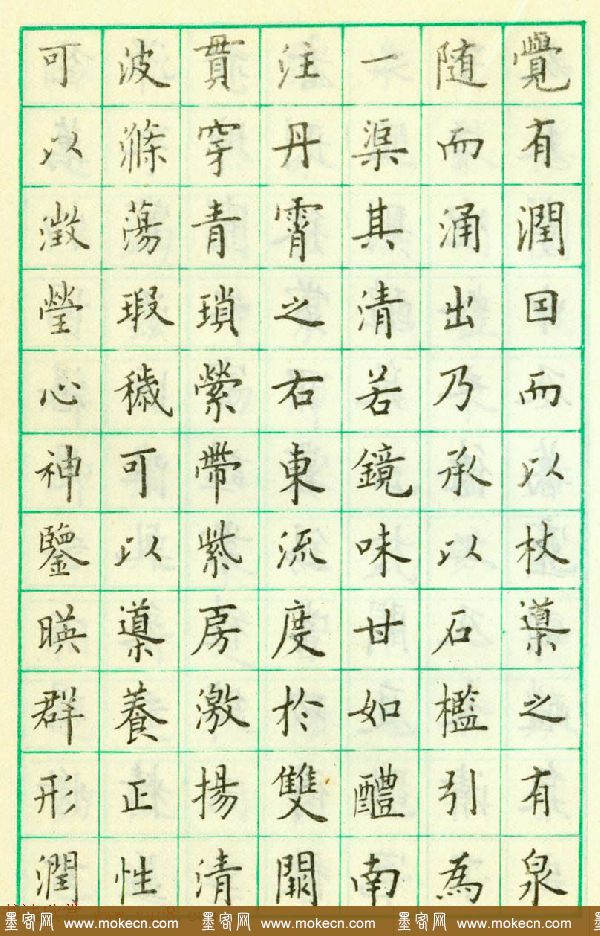 覺有潤囙而以杖導之有泉
随而涌出乃承以石檻引為
一渠其清若鏡味甘如醴南
注丹霄之右東流度於雙闕
貫穿青瑣縈帶紫房激揚清
波滌蕩瑕穢可以導養正性
可以澂瑩心神鑒暎群形潤
墨客网 www.mokecn.com 墨客网 www.mokecn.com 墨客网 www.mokecn.com